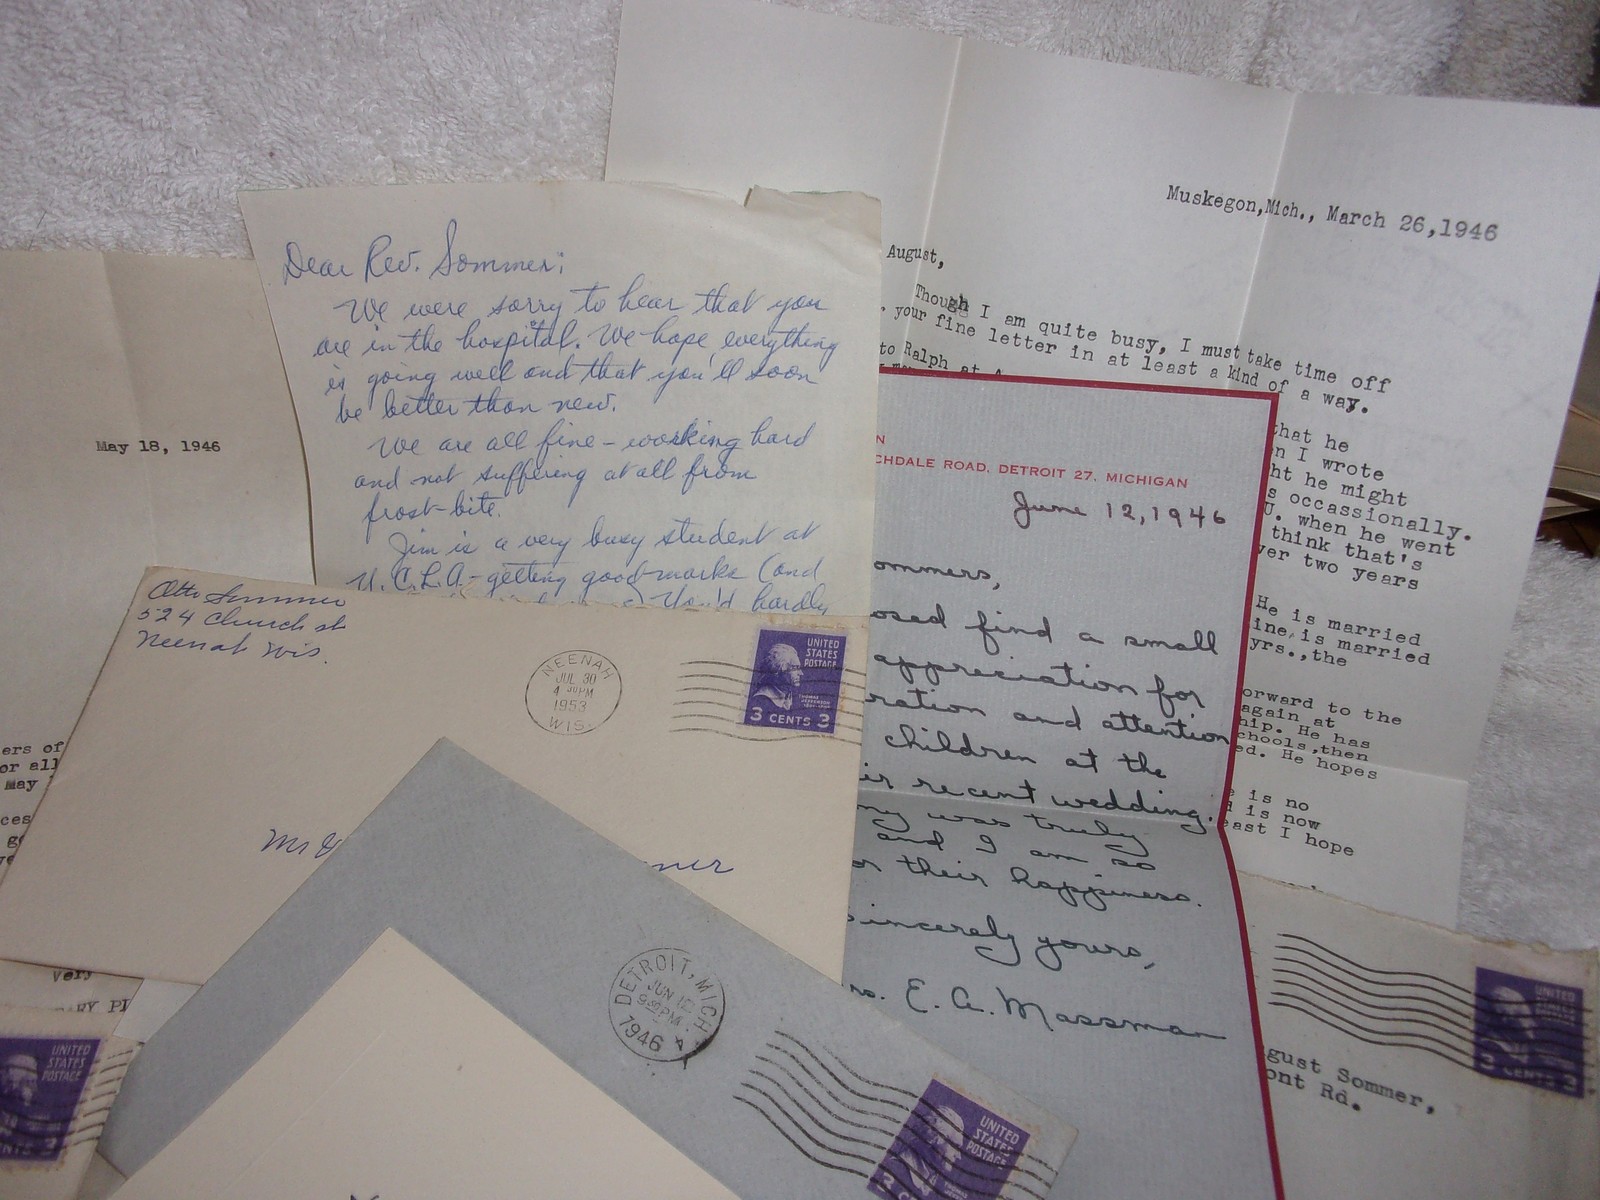 Muskegon,Mich., March 26,1946
August,
Though I am quite busy, I must take time off
your fine letter in at least a kind of a way.
to Ralph at
that he
n I wrote
ht he might
s occassionally.
U. when he went
think that's
ver two years
He is married
ine, is married
yrs.,the
orward to the
again at
hip. He has
chools,then
ed. He hopes
is no
is now
east I hope
Dear Rev. Sommer:
We were sorry to hear that you
are in the hospital. We hope everything
is going well and that you'll soon
be better than new.
We are all fine - working hard
and not suffering at all from
frost-bite.
Jim is a very busy student at
U.C.L.A. - getting good marks (and
You'd hardly
May 18, 1946
ers of
or all
May
ces
g
very
ARY PI
N
CHDALE ROAD. DETROIT 27, MICHIGAN
June 12, 1946
ommers,
osed find a small
appreciation for
ration and attention
children at the
ir recent wedding.
ny was truly
and I am so
or their happiness.
Sincerely yours,
rs. E. A. Massman
Otto Sommer
524 Church st
Neenah Wis.
NEENAH
JUL 30
4 30 PM
1953
WIS.
UNITED
STATES
POSTAGE
THOMAS
JEFFERSON
3 CENTS 3
Mr
mer
DETROIT, MICH
JUN 12
9 30 PM
1946
4
UNITED
STATES
POSTAGE
3 C
UNITED
STATES
POSTAGE
NTS 3
3 CENTS 3
gust Sommer,
ont Rd.